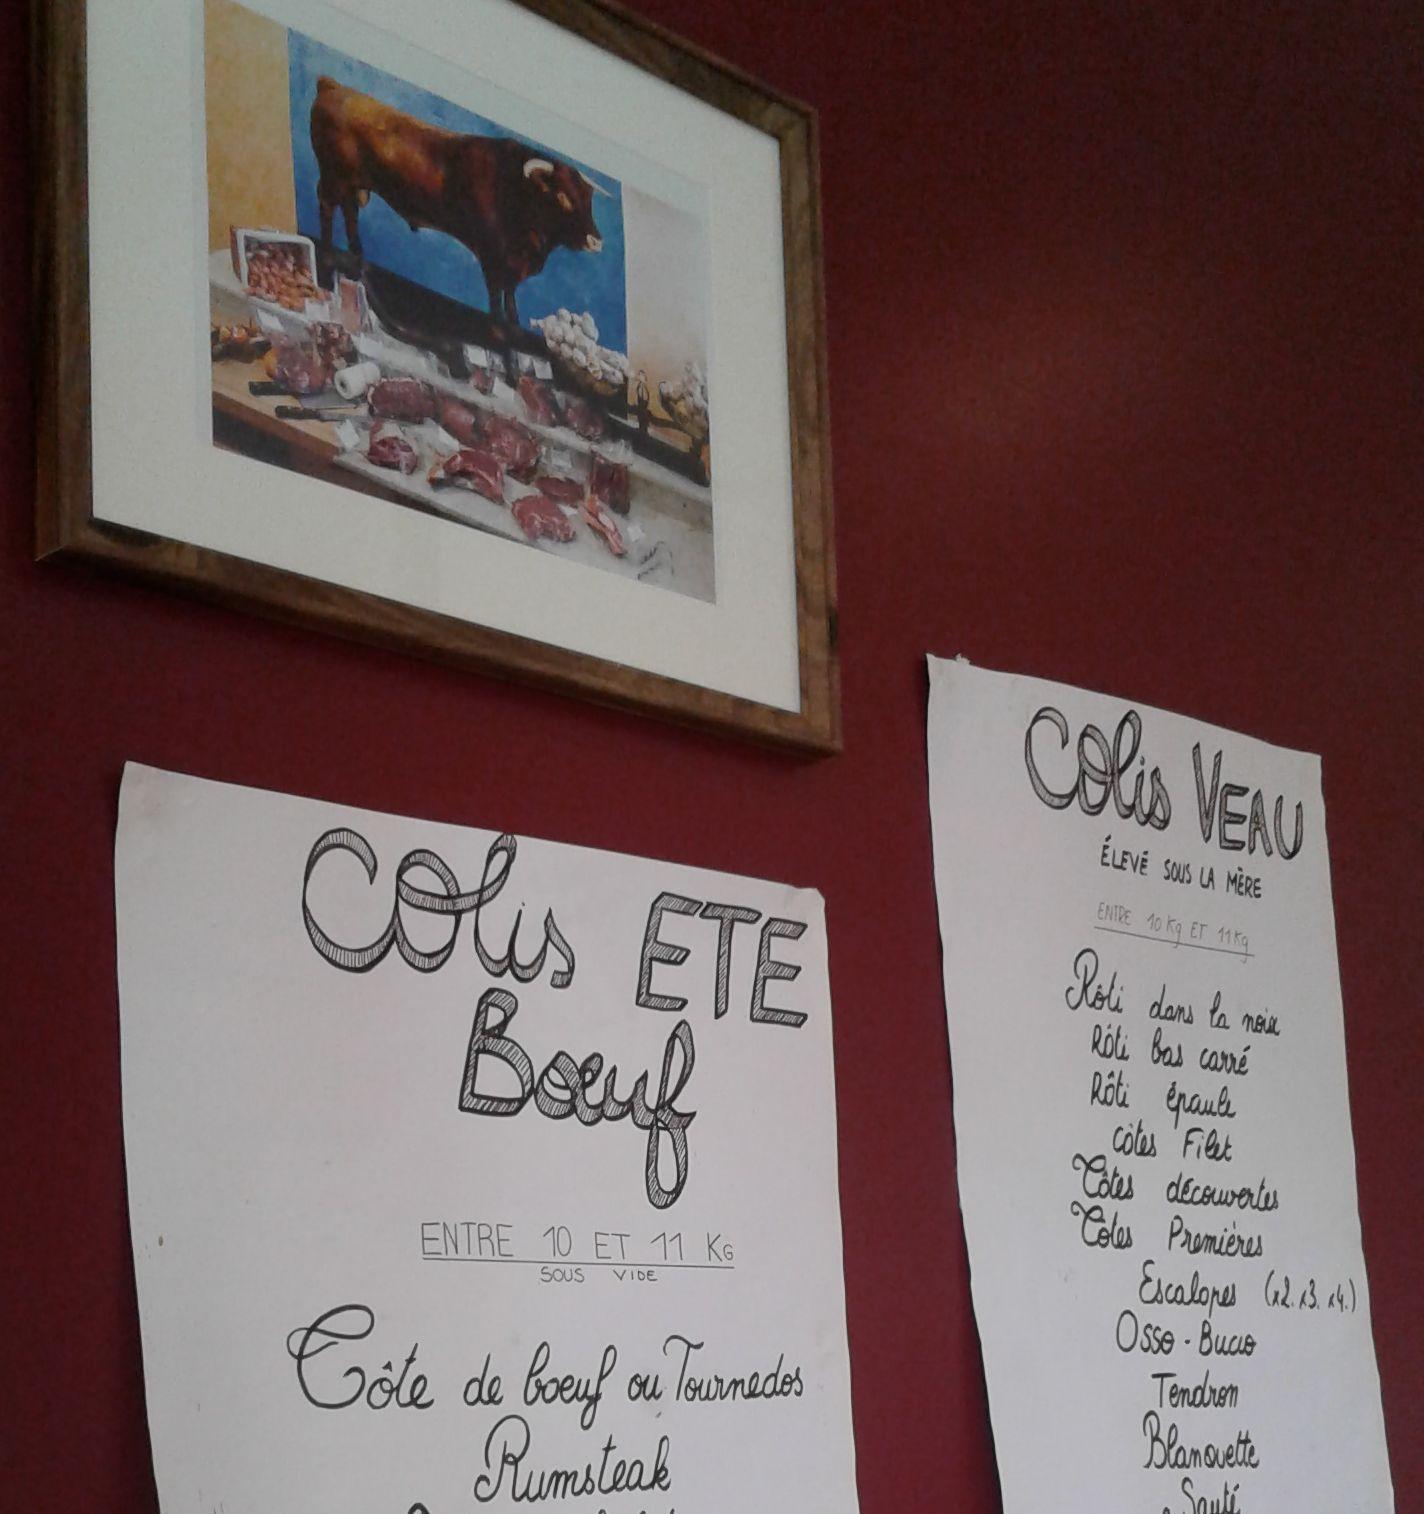 Colis ETE
Bœuf
ENTRE 10 ET 11 KG
SOUS VIDE
Côte de boeuf ou Tournedos
Rumsteak
Colis VEAU
ÉLEVÉ SOUS LA MÈRE
ENTRE 10 Kg ET 11 Kg
Rôti dans la noix
Rôti bas carré
Rôti épaule
côtes Filet
Côtes découvertes
Côtes Premières
Escalopes (x2. x3. x4.)
Osso-Bucco
Tendron
Blanquette
Sauté